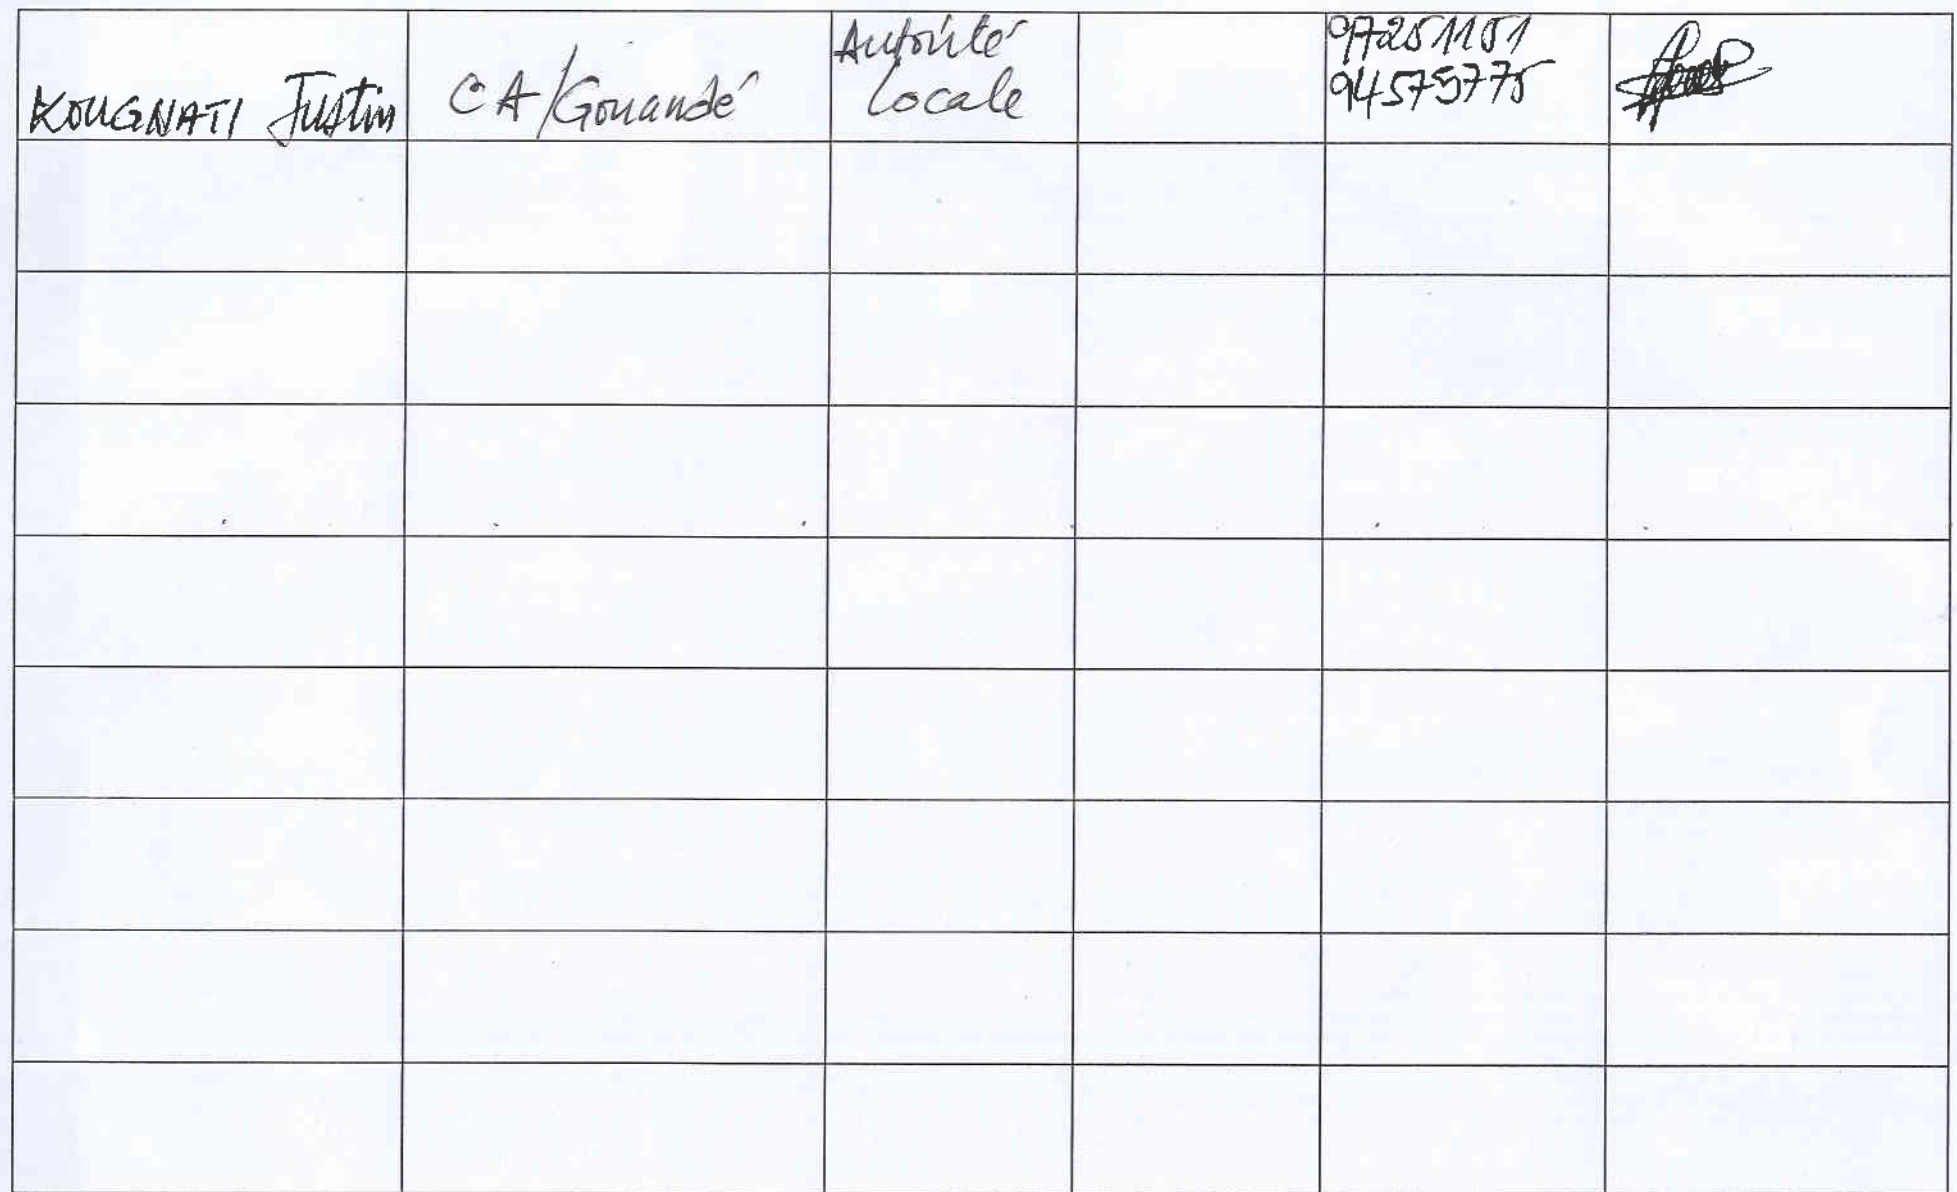 KOUGNATI Justin
CA/Gouandé
Autorité
Locale
97251151
94575775